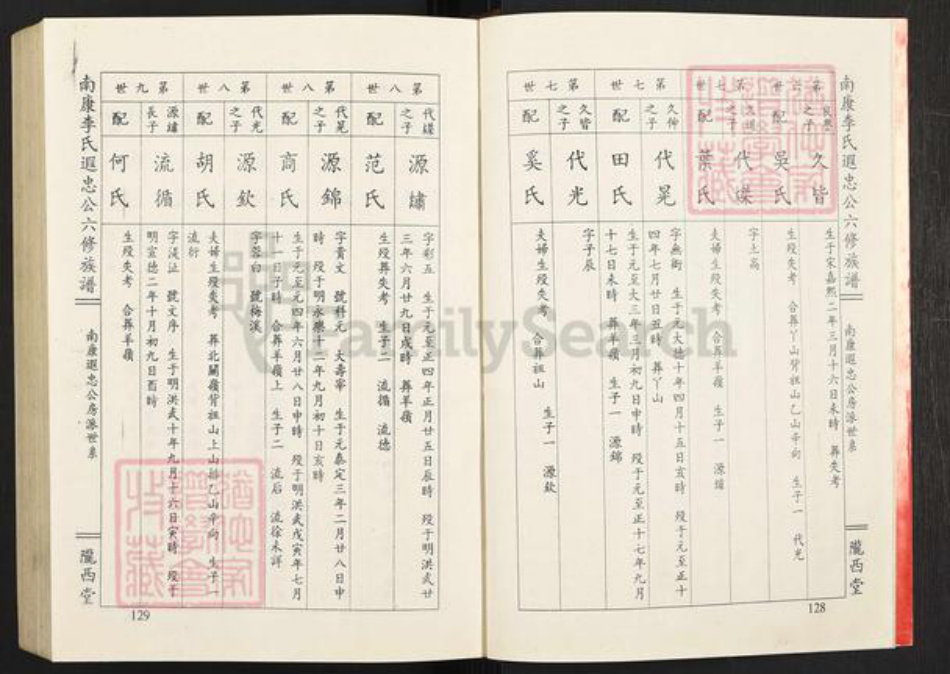 南康李氏遐忠公六修族譜
南康遐忠公房派世系
隴西堂
128
之子 久皆
生于宋嘉熙二年三月十六日未時 葬失考
配 吳氏
生歿失考 合葬丫山背祖山乙山辛向 生子一 代光
第七世
之子 代
字士高
配 葉氏
夫婦生歿失考 合葬羊嶺 生子一 源
第七世
久仲之子 代晃
四年七月廿日丑時 葬丫山
配 田氏
生于元至大三年三月初九日申時 歿于元至正十七年九月
十七日未時 葬羊嶺 生子一 源錦
第七世
久皆之子 代光
字子辰
配 奚氏
夫婦生歿失考 合葬祖山 生子一 源欽
第八世
之子 源繡
字彩五 生于元至正四年正月廿五日辰時 歿于明洪武廿
三年六月廿九日戌時 葬羊嶺
配 范氏
生歿葬失考 生子二 流循 流德
第八世
代晃之子 源錦
字貴文 號科元 大壽寧 生于元泰定三年二月廿八日申
時 歿于明永樂十二年九月初十日亥時
配 商氏
生于元至元四年六月廿八日申時 歿于明洪武戊寅年七月
十一日子時 合葬羊嶺上 生子二 流后 流徐未詳
第八世
代光之子 源欽
字蓉白 號梅溪
配 胡氏
夫婦生歿失考 葬北關嶺背祖山上山排乙山辛向 生子一
流衍
第九世
源繡長子 流循
字漢沚 號文序 生于明洪武十年九月十六日寅時 歿于
明宣德二年十月初九日酉時
配 何氏
生歿失考 合葬羊嶺
南康李氏遐忠公六修族譜
南康遐忠公房派世系
隴西堂
129
FamilySearch